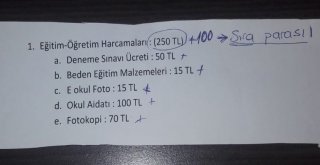 1. Eğitim-Öğretim Harcamaları : (250 TL) +100 → Sıra parası!
a. Deneme Sınavı Ücreti : 50 TL +
b. Beden Eğitim Malzemeleri : 15 TL +
c. E okul Foto : 15 TL +
d. Okul Aidatı : 100 TL +
e. Fotokopi : 70 TL +